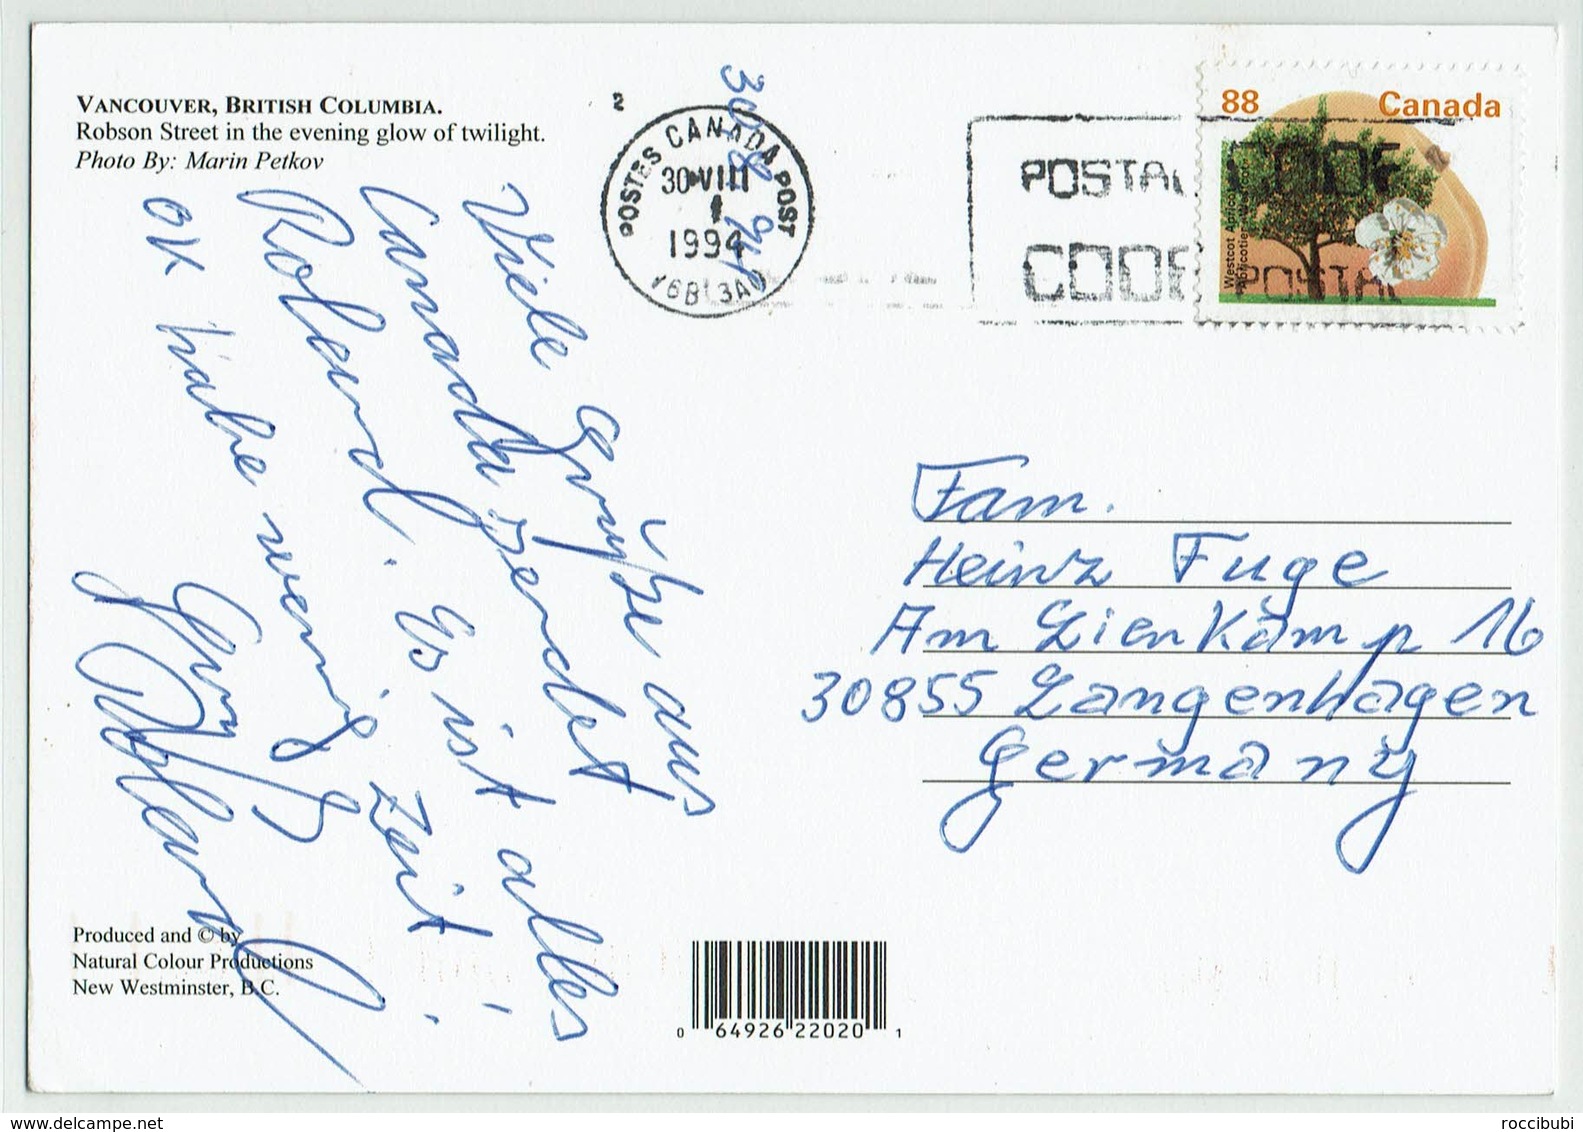 VANCOUVER, BRITISH COLUMBIA.
Robson Street in the evening glow of twilight.
Photo By: Marin Petkov
30.8.94
Viele Grüße aus
Canada sendet
Roland. Es ist alles
OK habe wenig Zeit!
Gruß
Roland
2
POSTES CANADA POST
30 VIII
1994
V6B 3A0
POSTAL CODE
CODE POSTAL
88 Canada
Westcot Apricot
Abricotier Westcot
Fam.
Heinz Fuge
Am Lienkamp 16
30855 Langenhagen
Germany
Produced and © by
Natural Colour Productions
New Westminster, B.C.
0 64926 22020 1
www.delcampe.net
roccibubi